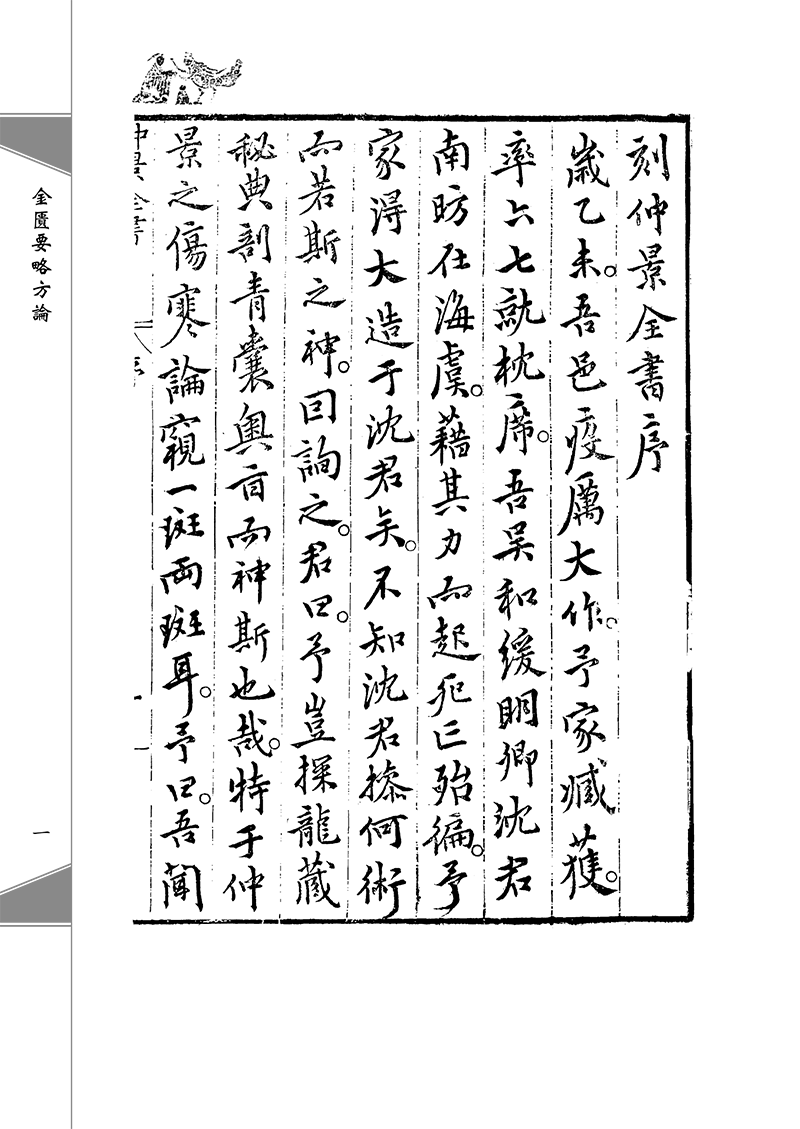 刻仲景全書序
歲乙未。吾邑疫厲大作。予家臧獲。
率六七就枕席。吾吳和緩明卿沈君
南昉在海虞。藉其力而起死亡殆徧。予
家得大造于沈君矣。不知沈君操何術
而若斯之神。因詢之。君曰。予豈探龍藏
秘典剖青囊奧旨而神斯也哉。特于仲
景之傷寒論窺一斑兩斑耳。予曰。吾聞
仲景全書 序 一
金匱要略方論
一